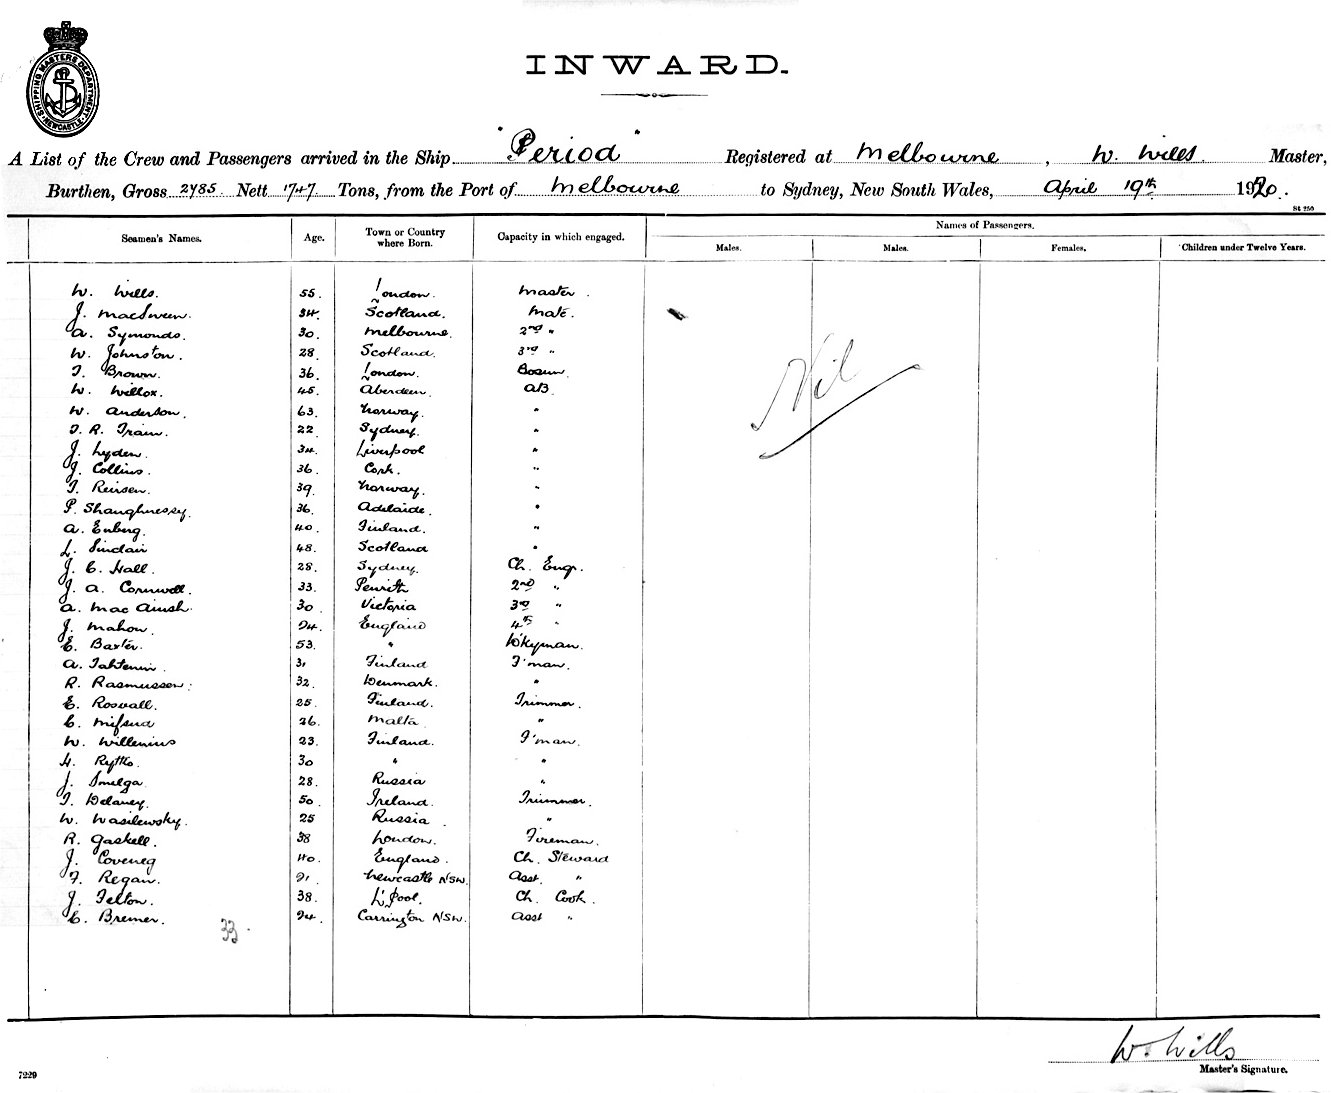 SHIPPING MASTERS DEPARTMENT NEWCASTLE
INWARD.
A List of the Crew and Passengers arrived in the Ship "Period" Registered at Melbourne, W. Wills. Master,
Burthen, Gross 2785 Nett 1747 Tons, from the Port of Melbourne to Sydney, New South Wales, April 19th 1920.
St 250
Seamen's Names. Age. Town or Country where Born. Capacity in which engaged. Names of Passengers.
Males. Males. Females. Children under Twelve Years.
W. Wills. 55. London. Master.
J. MacSween. 34. Scotland. Mate.
A. Symonds. 30. Melbourne. 2nd "
W. Johnston. 28. Scotland. 3rd "
T. Brown. 36. London. Bosun.
W. Willox. 45. Aberdeen. AB.
W. Anderson. 63. Norway. "
T. R. Train. 22. Sydney. "
J. Lyden. 34. Liverpool "
J. Collins. 36. Cork. "
T. Reirsen. 39. Norway. "
P. Shaughnessy. 36. Adelaide. "
A. Enberg. 40. Finland. "
L. Sinclair 48. Scotland "
J. C. Hall. 28. Sydney. Ch. Engr.
J. A. Cornwell. 33. Penrith 2nd "
A. Mac Ainsh. 30. Victoria 3rd "
J. Mahon. 24. England 4th "
E. Baxter. 53. " D'kyman.
A. 31 Finland F'man.
R. Rasmussen. 32. Denmark. "
E. Rosvall. 25. Finland. Trimmer.
C. Mifsud 26. Malta "
W. Willenius 23. Finland. F'man.
H. 30 " "
J. Smelga 28. Russia "
T. Delaney. 50. Ireland. Trimmer.
W. Wasilewsky. 25 Russia. "
R. Gaskell. 38 London. Fireman.
J. Coveney 40. England. Ch. Steward
F. Regan. 21. Newcastle NSW. Asst. "
J. Felton. 38. L'pool. Ch. Cook.
C. Bremer. 24. Carrington NSW. Asst "
33.
Nil
W. Wills
Master's Signature.
7229